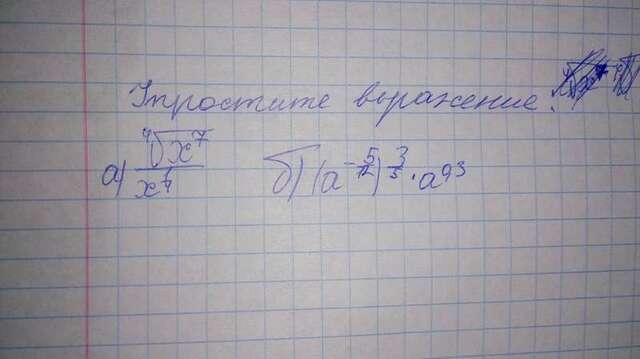 Упростите выражение.
а) ⁴√x⁷ / x^(1/4) б) (a^(-5/12))^(3/5) · a^0,3